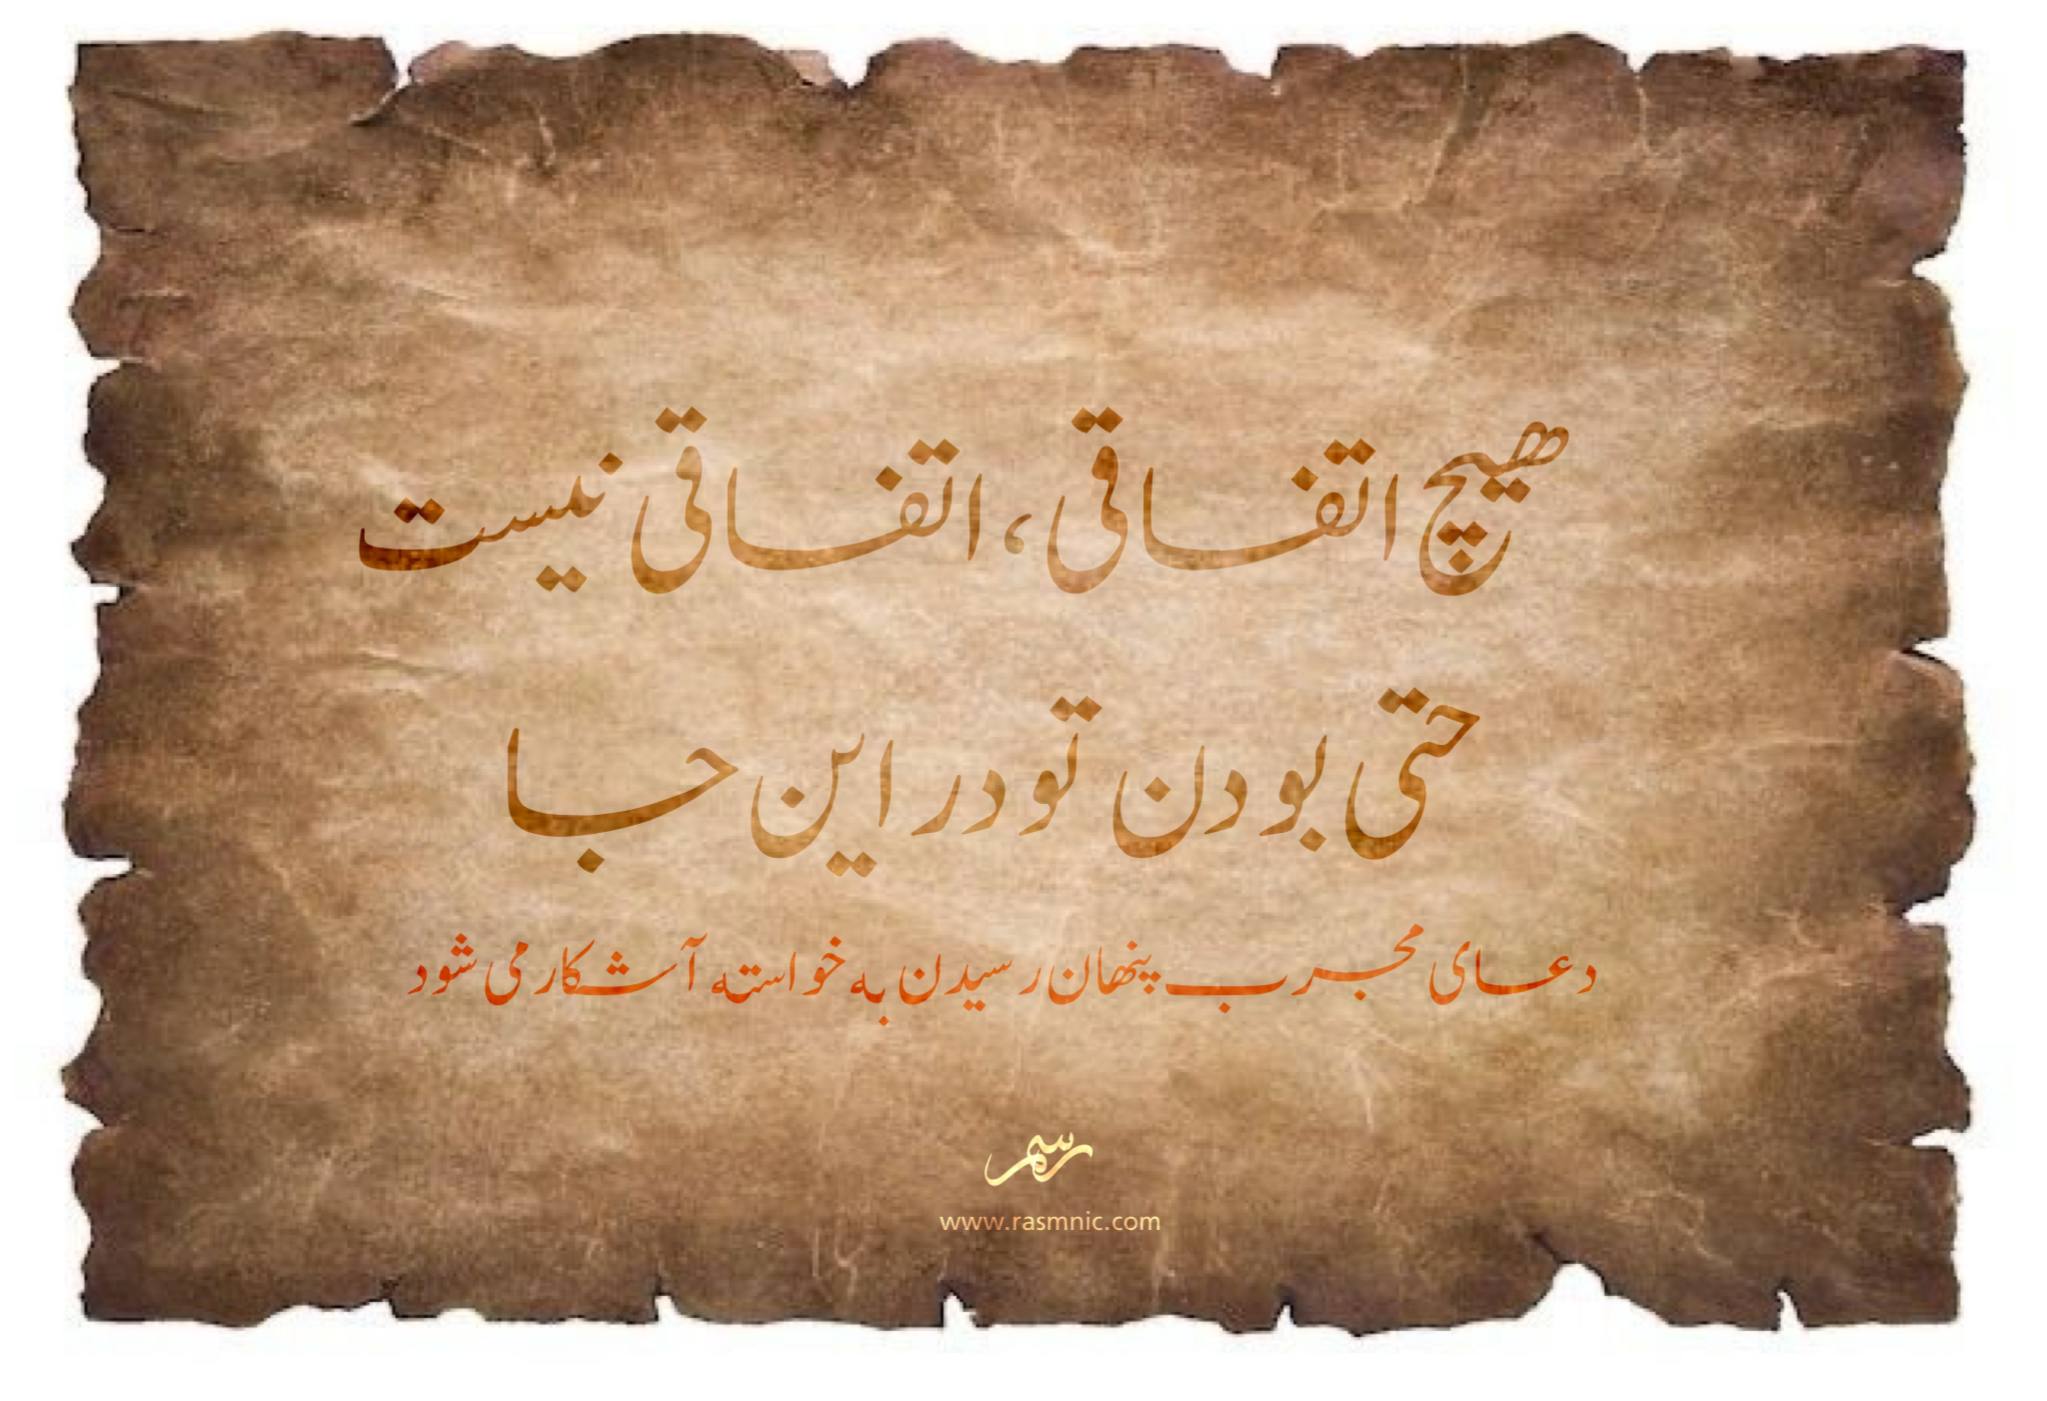 هیچ اتفاقی، اتفاقی نیست
حتی بودن تو در این جا
دعای مجرب پنهان رسیدن به خواسته آشکار می شود
رسم
www.rasmnic.com